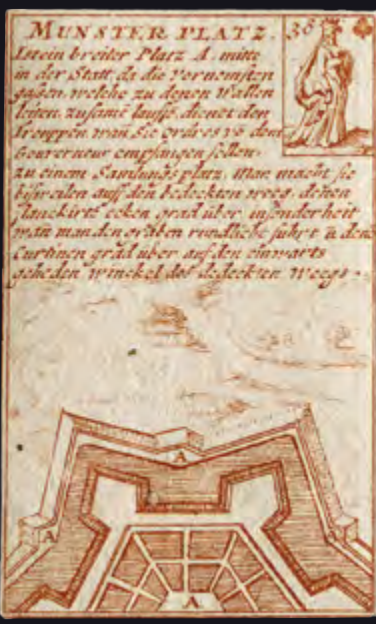 MUNSTER PLATZ.
38
Ist ein breiter Platz A. mitte
in der Statt, da die Vornemsten
gaßen, welche zu denen Wallen
leiten, zusame lauffe, dienet den
Trouppen, wan sie ordres vō dem
Gouverneur empfangen sollen,
zu einem Samlungs platz, Man macht sie
bißweilen auff den bedeckten weeg, denen
flanckirte ecken grad über, insonderheit
wan man den graben rundlicht führt, ū denē
Curtinen grad über auf den einwarts
geheden winckel deß bedeckten Weegs
A
A
A